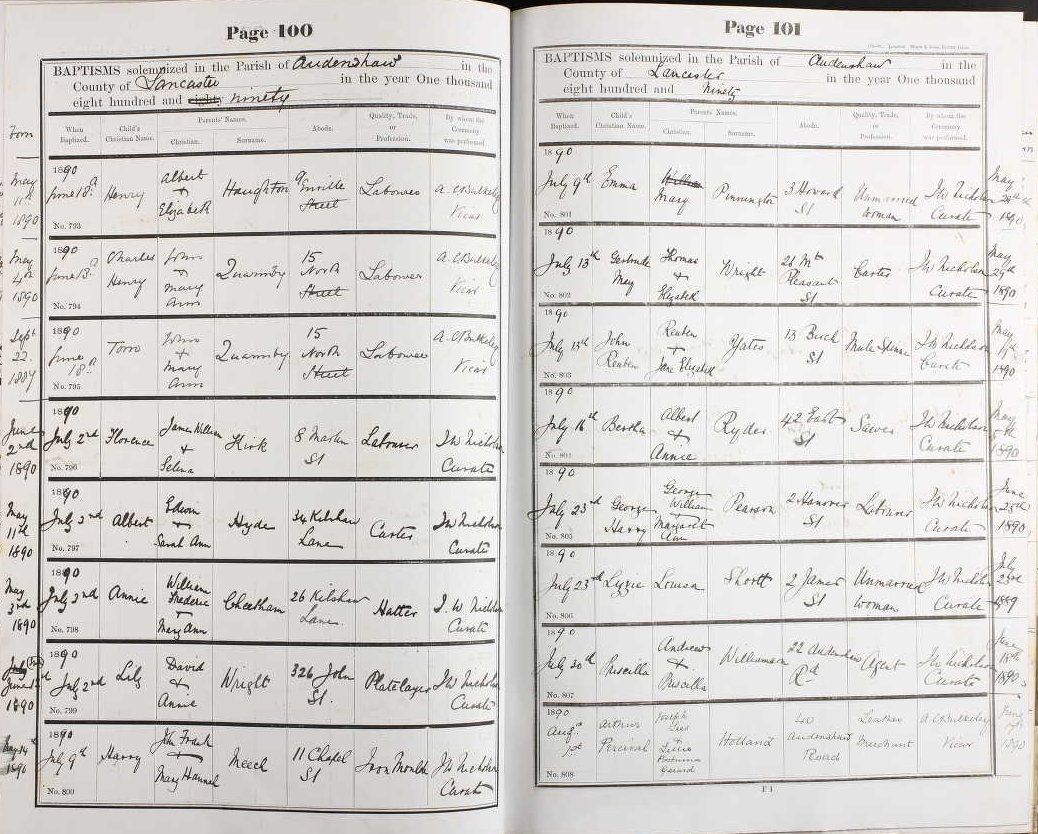 Page 100
BAPTISMS solemnized in the Parish of Audenshaw in the
County of Lancaster in the year One thousand
eight hundred and eighty ninety
Born
When Baptized.
Child's Christian Name.
Parents' Names.
Christian.
Surname.
Abode.
Quality, Trade, or Profession.
By whom the Ceremony was performed.
May 11th 1890
1890 June 18th No. 793
Henry
Albert + Elizabeth
Haughton
9 Enville Street
Labourer
A. C. Bulkeley Vicar
May 4th 1890
1890 June 18th No. 794
Charles Henry
John + Mary Ann
Quarmby
15 North Street
Labourer
A. C. Bulkeley Vicar
Sept 22 1887
1890 June 18th No. 795
Tom
John + Mary Ann
Quarmby
15 North Street
Labourer
A. C. Bulkeley Vicar
June 2nd 1890
1890 July 2nd No. 796
Florence
James William + Selina
Kirk
8 Martin St
Labourer
J W Nicholson Curate
May 11th 1890
1890 July 2nd No. 797
Albert
Edwin + Sarah Ann
Hyde
34 Kilshaw Lane
Carter
J W Nicholson Curate
May 3rd 1890
1890 July 2nd No. 798
Annie
William Frederic + Mary Ann
Cheetham
26 Kilshaw Lane
Hatter
J. W Nicholson Curate
June 1890
1890 July 2nd No. 799
Lily
David + Annie
Wright
326 John St.
Platelayer
J W Nicholson Curate
May 14th 1890
1890 July 9th No. 800
Harry
John Frank + Mary Hannah
Meech
11 Chapel St
Iron Moulder
J W Nicholson Curate
Page 101
BAPTISMS solemnized in the Parish of Audenshaw in the
County of Lancaster in the year One thousand
eight hundred and ninety
When Baptized.
Child's Christian Name.
Parents' Names.
Christian.
Surname.
Abode.
Quality, Trade, or Profession.
By whom the Ceremony was performed.
1890 July 9th No. 801
Emma
William Mary
Pennington
3 Howard St
Unmarried woman
J W Nicholson Curate
May 1890
1890 July 13th No. 802
Gertrude May
Thomas + Elizabeth
Wright
Mt Pleasant St
Carter
J W Nicholson Curate
May 29th 1890
1890 July 13th No. 803
John Reuben
Reuben + Jane Elizabeth
Yates
13 Birch St
J W Nicholson Curate
May 1890
1890 July 16th No. 804
Bertha
Albert + Annie
Ryder
42 East St
Sawer
J W Nicholson Curate
May 1890
1890 July 23rd No. 805
George Harry
George William Margaret Ann
Pearson
2 Hanover St
J W Nicholson Curate
June 25th 1890
1890 July 23rd No. 806
Lizzie
Louisa
Shortt
2 James St
Unmarried woman
J W Nicholson Curate
July 23rd 1889
1890 July 30th No. 807
Priscilla
Andrew + Priscilla
Williamson
22 Audenshaw Rd
Agent
J W Nicholson Curate
June 18th 1890
1890 Augst No. 808
Arthur Percival
Joseph + Postuma Gerard
Holland
40 Audenshaw Road
Leather Merchant
A. C. Bulkeley Vicar
June 1890